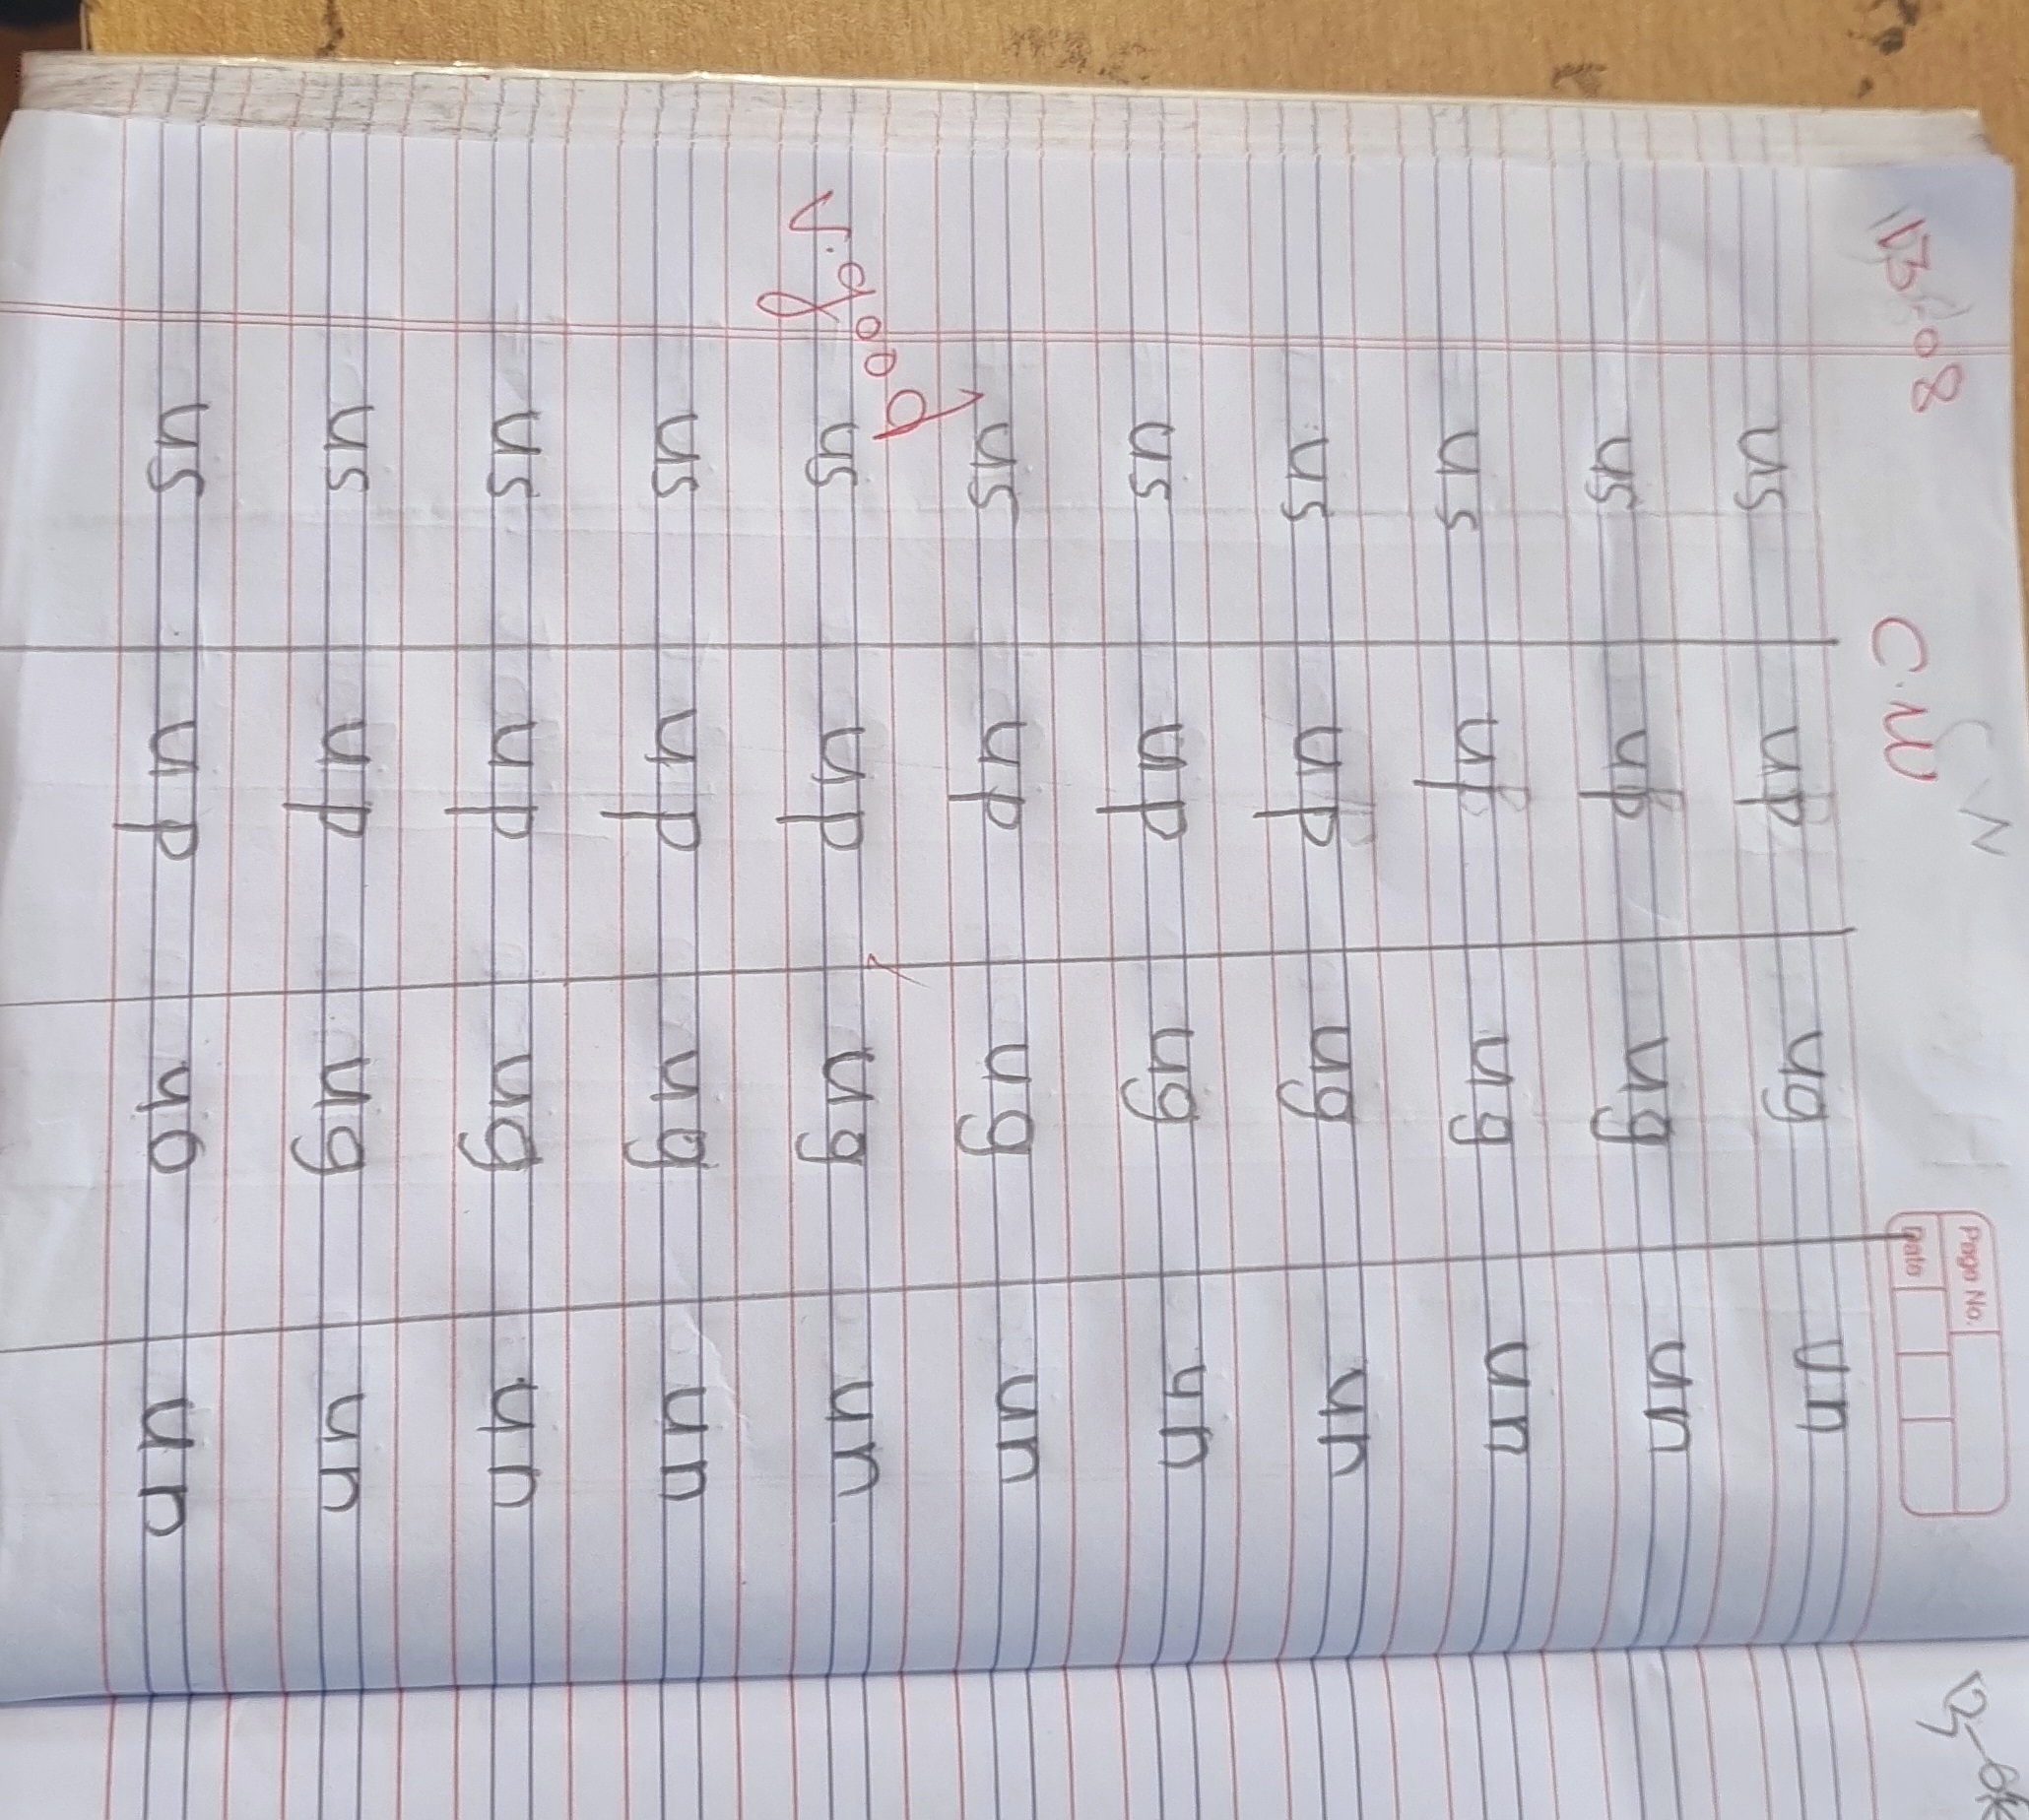 13-08 C.W Page No.
Date
us up ug un
us up ug un
us up ug un
us up ug un
us up ug un
us up ug un
V.good
us up ug un
us up ug un
us up ug un
us up ug un
us up un